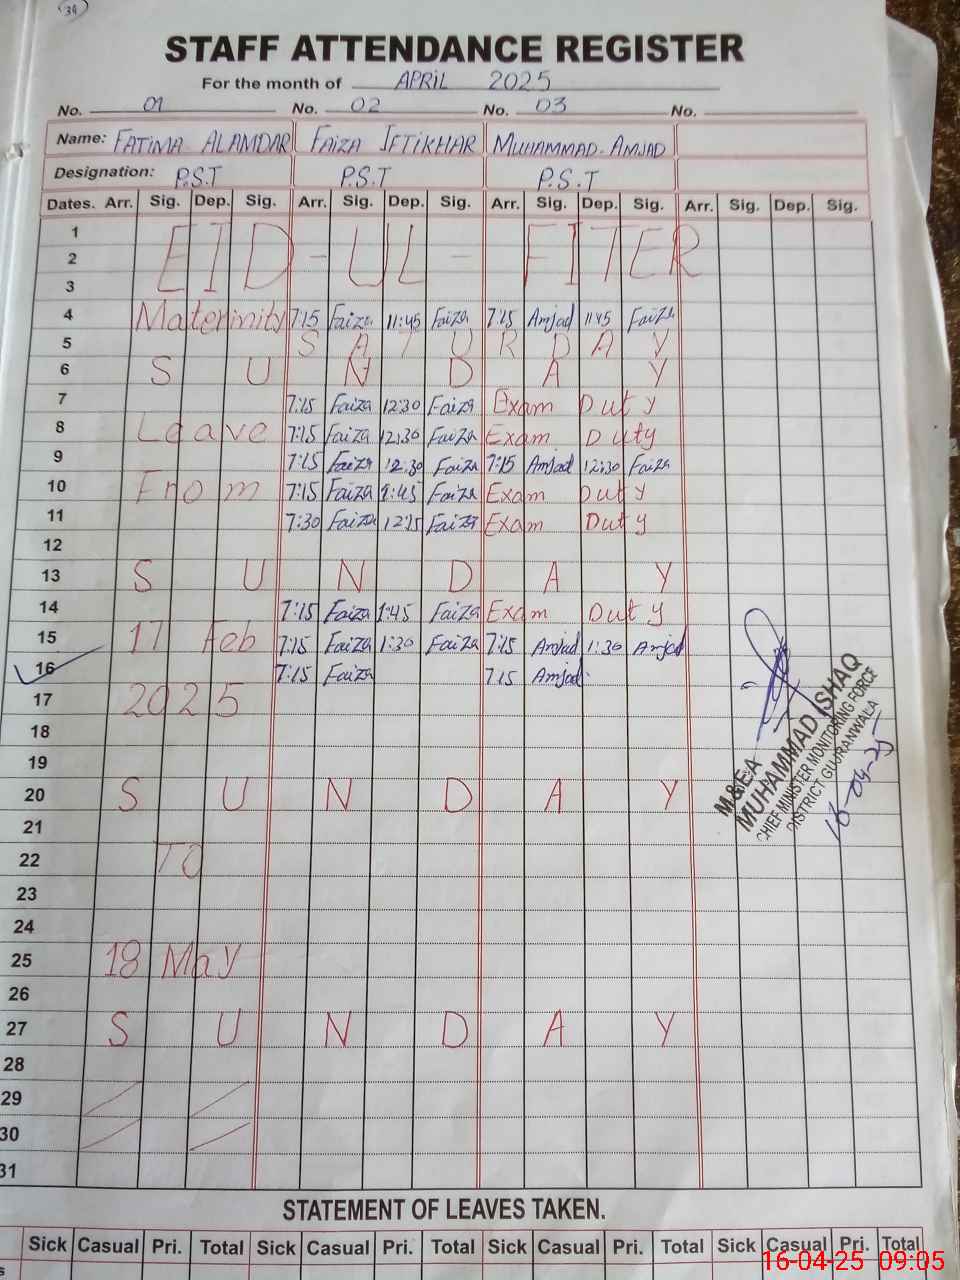 39
STAFF ATTENDANCE REGISTER
For the month of APRIL 2025
No. 01 No. 02 No. 03 No.
Name: FATIMA ALAMDAR FAIZA IFTIKHAR MUHAMMAD. AMJAD
Designation: P.S.T P.S.T P.S.T
Dates. Arr. Sig. Dep. Sig. Arr. Sig. Dep. Sig. Arr. Sig. Dep. Sig. Arr. Sig. Dep. Sig.
1
2 EID - UL - FITER
3
4 Materinity 7:15 Faiza 11:45 Faiza 7:15 Amjad 11:45 Faiza
5 SATURDAY
6 SUNDAY
7 7:15 Faiza 12:30 Faiza Exam Duty
8 Leave 7:15 Faiza 12:30 Faiza Exam Duty
9 7:15 Faiza 12:30 Faiza 7:15 Amjad 12:30 Faiza
10 From 7:15 Faiza 1:45 Faiza Exam Duty
11 7:30 Faiza 12:15 Faiza Exam Duty
12
13 SUNDAY
14 7:15 Faiza 1:45 Faiza Exam Duty
15 17 Feb 7:15 Faiza 1:30 Faiza 7:15 Amjad 1:30 Amjad
16 7:15 Faiza 7:15 Amjad
17 2025
18
19
20 SUNDAY
21
22 TO
23
24
25 18 May
26
27 SUNDAY
28
29
30
31
M&EA
MUHAMMAD ISHAQ
CHIEF MINISTER MONITORING FORCE
DISTRICT GUJRANWALA
16-04-25
STATEMENT OF LEAVES TAKEN.
Sick Casual Pri. Total Sick Casual Pri. Total Sick Casual Pri. Total Sick Casual Pri. Total
16-04-25 09:05